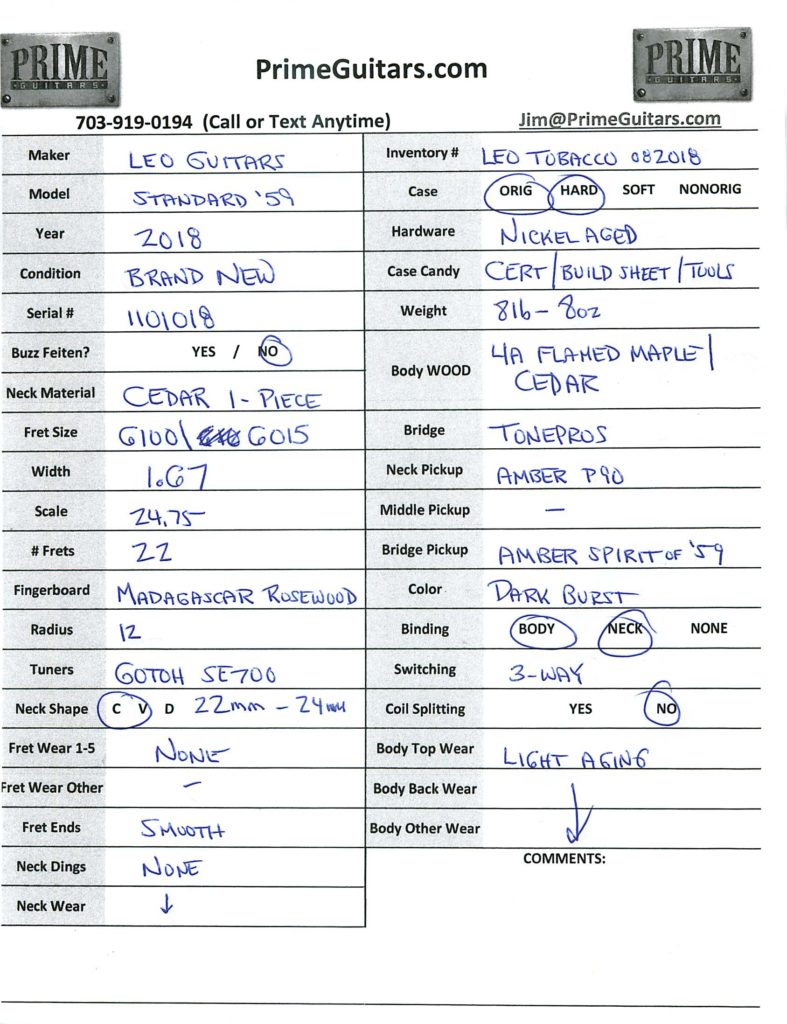 PRIME
GUITARS
PrimeGuitars.com
PRIME
GUITARS
703-919-0194 (Call or Text Anytime)
Jim@PrimeGuitars.com
Maker LEO GUITARS
Model STANDARD '59
Year 2018
Condition BRAND NEW
Serial # 1101018
Buzz Feiten? YES / NO
Neck Material CEDAR 1-PIECE
Fret Size 6100\ 6015
Width 1.67
Scale 24.75
# Frets 22
Fingerboard MADAGASCAR ROSEWOOD
Radius 12
Tuners GOTOH SE700
Neck Shape C V D 22mm - 24mm
Fret Wear 1-5 NONE
Fret Wear Other -
Fret Ends SMOOTH
Neck Dings NONE
Neck Wear ↓
Inventory # LEO TOBACCO 082018
Case ORIG HARD SOFT NONORIG
Hardware NICKEL AGED
Case Candy CERT/BUILD SHEET/TOOLS
Weight 8lb - 8oz
Body WOOD 4A FLAMED MAPLE/
CEDAR
Bridge TONEPROS
Neck Pickup AMBER P90
Middle Pickup -
Bridge Pickup AMBER SPIRIT OF '59
Color DARK BURST
Binding BODY NECK NONE
Switching 3-WAY
Coil Splitting YES NO
Body Top Wear LIGHT AGING
Body Back Wear ↓
Body Other Wear
COMMENTS: